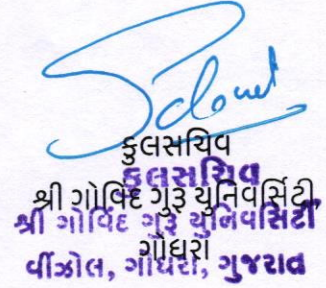 કુલસચિવ
કુલસચિવ
શ્રી ગોવિંદ ગુરુ યુનિવર્સિટી,
શ્રી ગોવિંદ ગુરુ યુનિવર્સિટી
ગોધરા
વીંઝોલ, ગોધરા, ગુજરાત